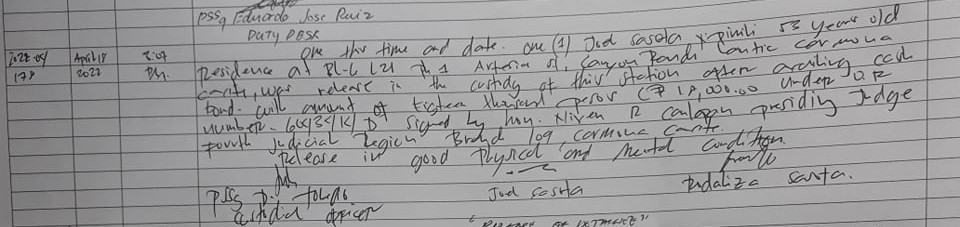 PSSg Eduardo Jose Ruiz
DUTY DESK
2022-04 April 18 2:07 One this time and date. one (1) Jod sasota y pinili 53 years old
178 2022 PM. Residence at BL-6 L21 Ph 1 Arteria st, Canyon Ranch Cantic carmona
cavite, was release in the custody of this station after availing cash
bond. with amount of Eigteen thousand pesos (₱ 18,000.00 under O.R
number- signed by hon. Niven R canlapan presiding Judge
Fourth Judicial Region Branch 109 carmona cavite.
Release in good Physical and Mental Condition.
PSSg Jod sasota sasota.
custodial officer